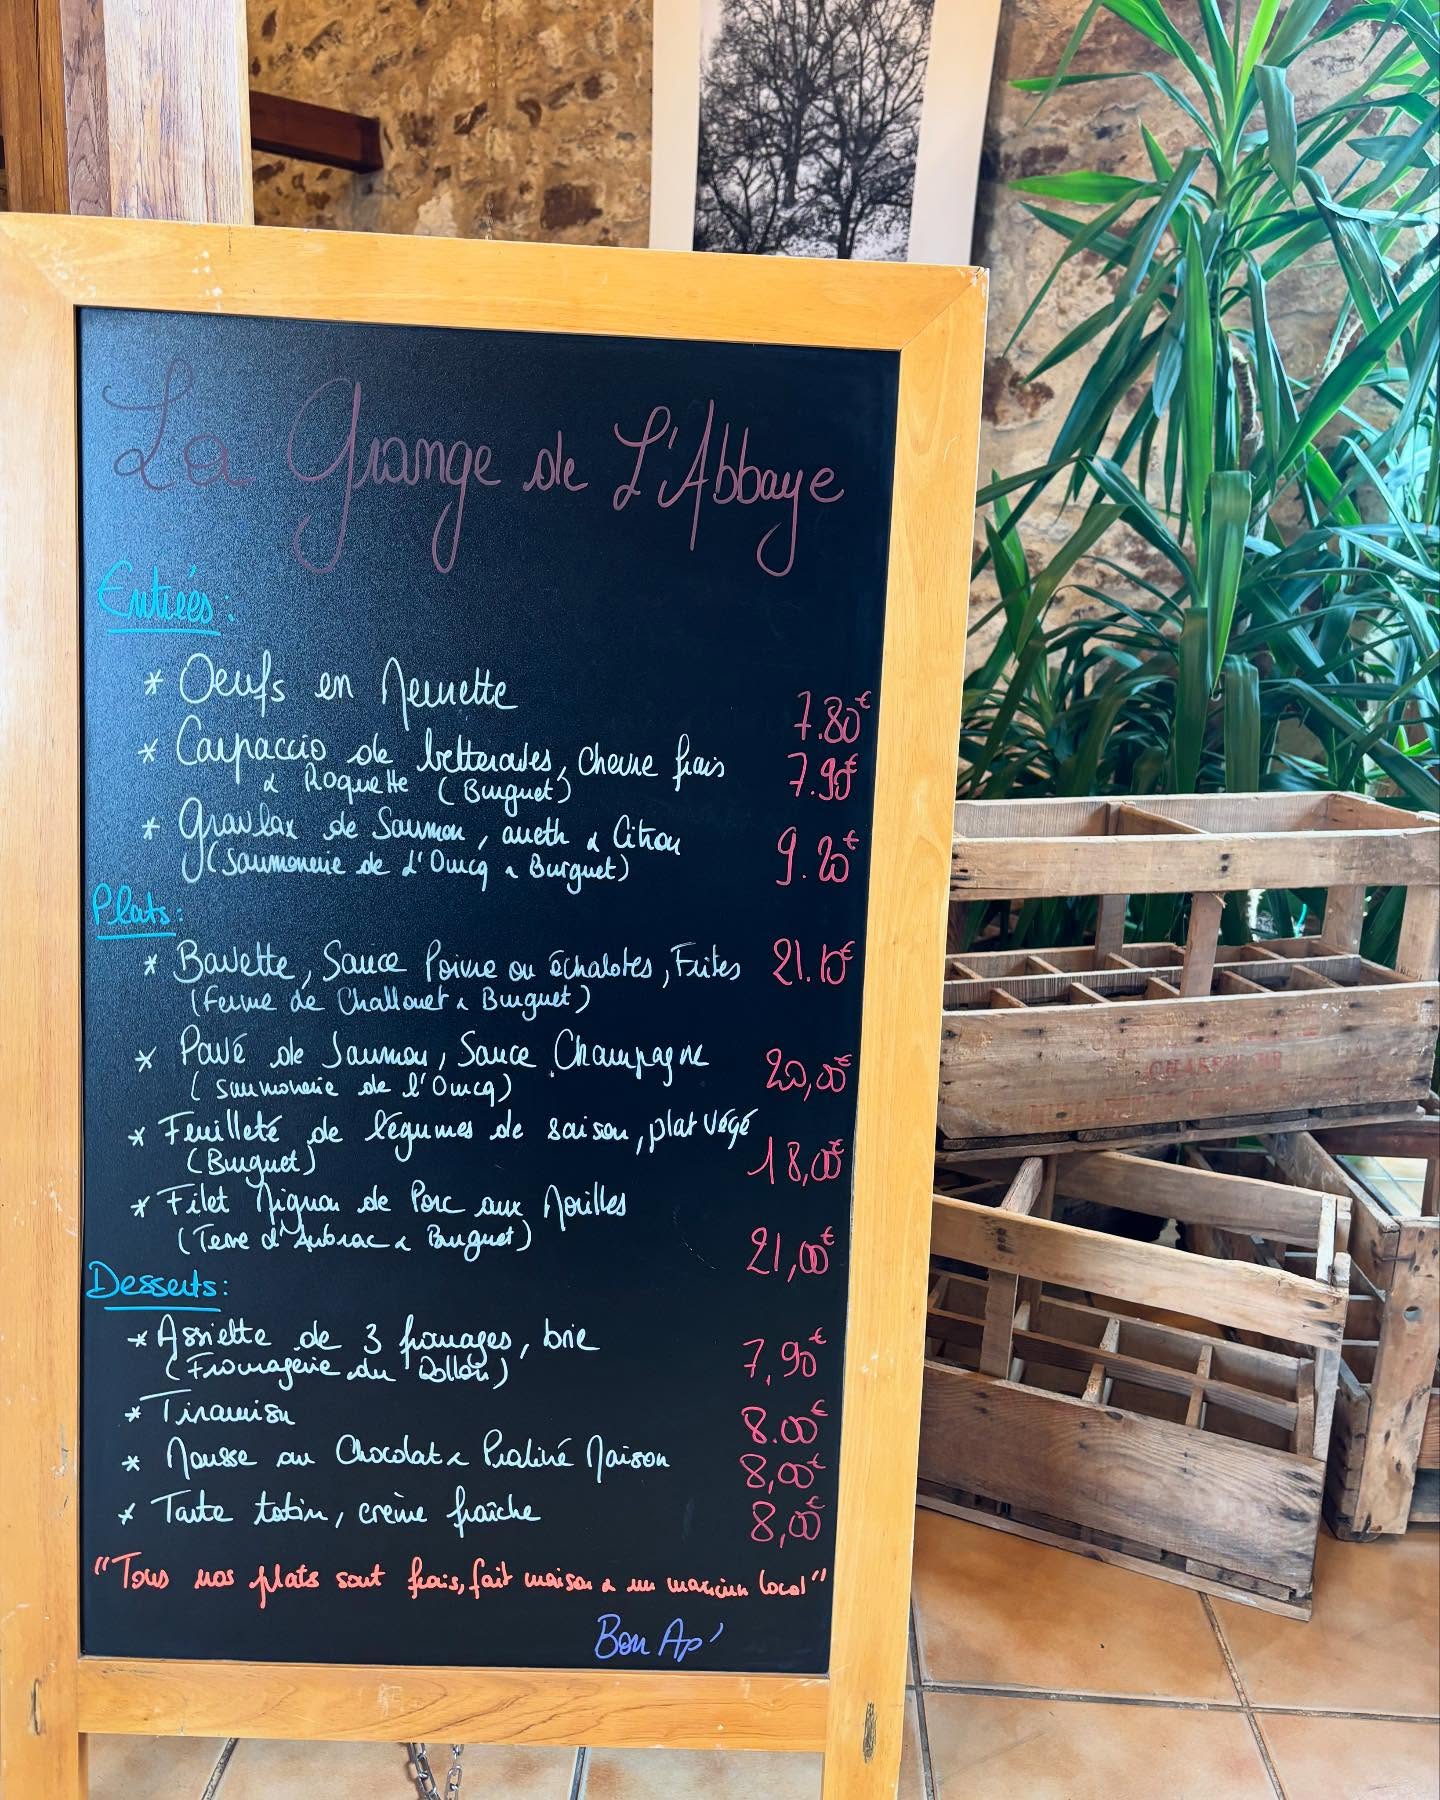 La Grange de L'Abbaye
Entrées :
* Oeufs en Meurette 7.80€
* Carpaccio de betteraves, chevre frais 7.90€
& Roquette (Burguet)
* Gravlax de Saumon, aneth & Citron 9.20€
(Saumonerie de l'Ourcq & Burguet)
Plats :
* Bavette, Sauce Poivre ou échalotes, Frites 21.10€
(Ferme de Challouet & Burguet)
* Pavé de Saumon, Sauce Champagne 20,00€
(saumonerie de l'Ourcq)
* Feuilleté de légumes de saison, plat végé 18,00€
(Burguet)
* Filet Mignon de Porc aux Morilles 21,00€
(Terre d'Aubrac & Burguet)
Desserts :
* Assiette de 3 fromages, brie 7,90€
(Fromagerie du Dolloir)
* Tiramisu 8.00€
* Mousse au Chocolat & Praliné Maison 8,00€
* Tarte tatin, crème fraîche 8,00€
"Tous nos plats sont frais, fait maison & un maximum local"
Bon Ap'
CHASSELOUP